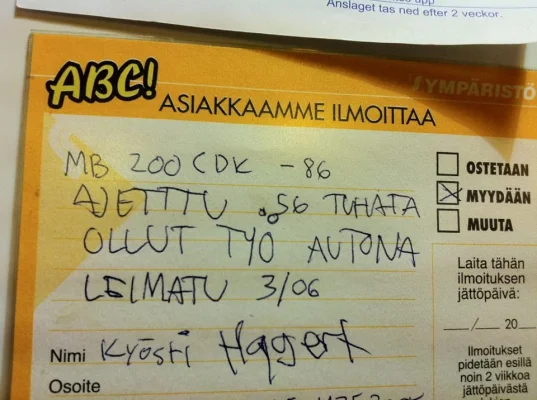 Anslaget tas ned efter 2 veckor.
ABC!
ASIAKKAAMME ILMOITTAA
YMPÄRISTÖ
MB 200 CDK -86
AJETTTU .56 TUHATA
OLLUT TYÖ AUTONA
LEIMATU 3/06
OSTETAAN
MYYDÄÄN
MUUTA
Laita tähän
ilmoituksen
jättöpäivä:
__/__ 20__
Nimi Kyösti Haggert
Osoite
Ilmoitukset
pidetään esillä
noin 2 viikkoa
jättöpäivästä